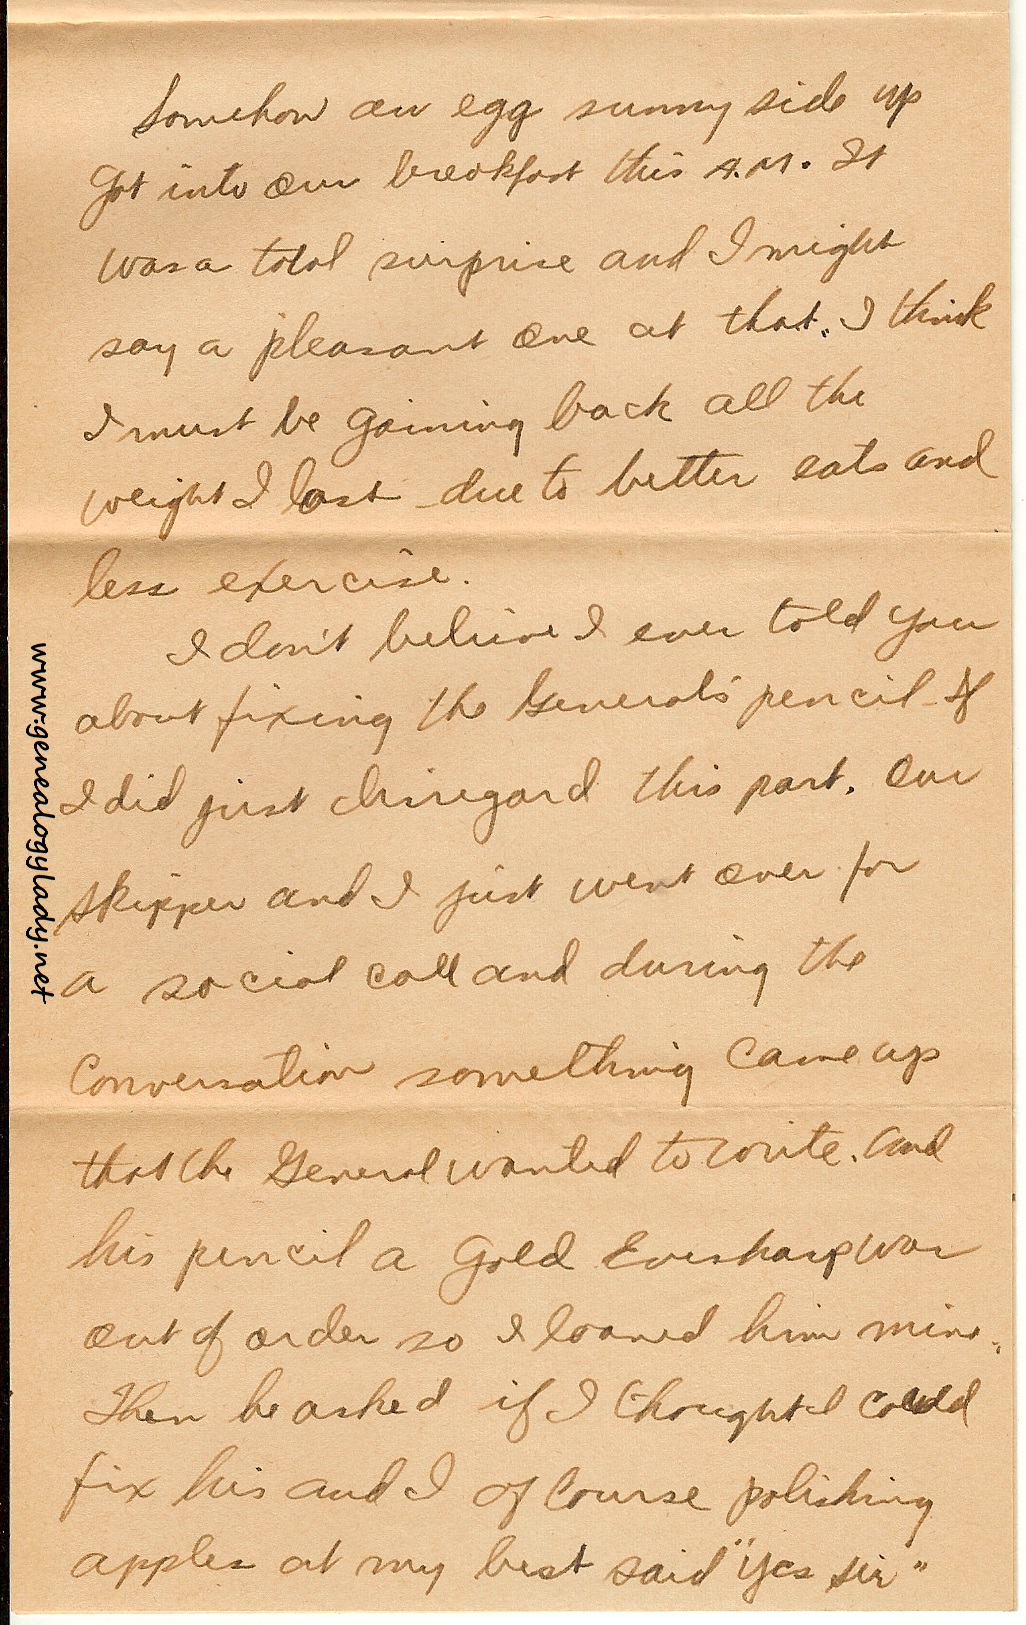 Somehow an egg sunny side up
got into our breakfast this A.M. It
was a total surprise and I might
say a pleasant one at that. I think
I must be gaining back all the
weight I lost due to better eats and
less exercise.
I don't believe I ever told you
about fixing the General's pencil. If
I did just disregard this part. Our
skipper and I just went over for
a social call and during the
conversation something came up
that the General wanted to write. And
his pencil a Gold Eversharp was
out of order so I loaned him mine.
Then he asked if I thought I could
fix his and I of course polishing
apples at my best said "Yes sir"
www.genealogylady.net